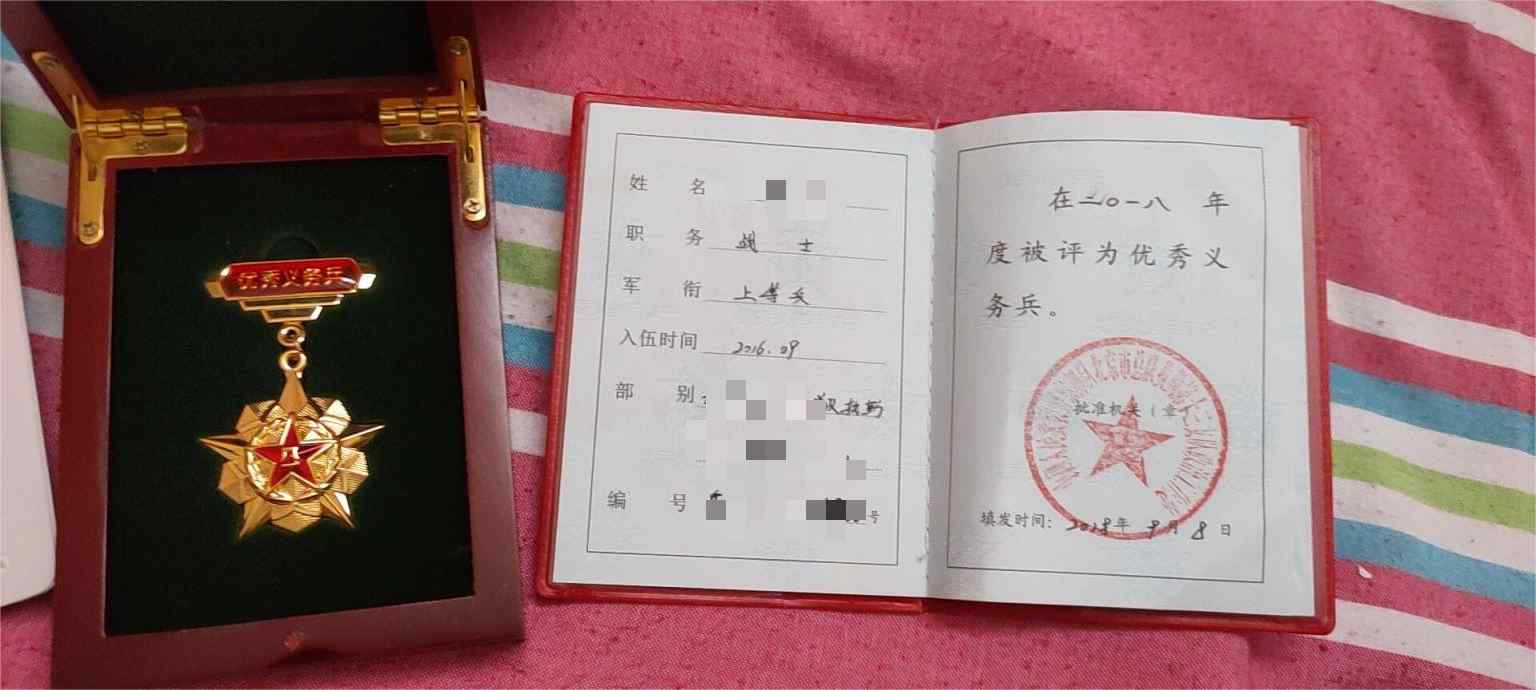 优秀义务兵
姓 名
职 务 战 士
军 衔 上等兵
入伍时间 2016.09
部 别
编 号 号
在二〇一八 年
度被评为优秀义
务兵。
批准机关（章）
填发时间：2018年 9月 8日